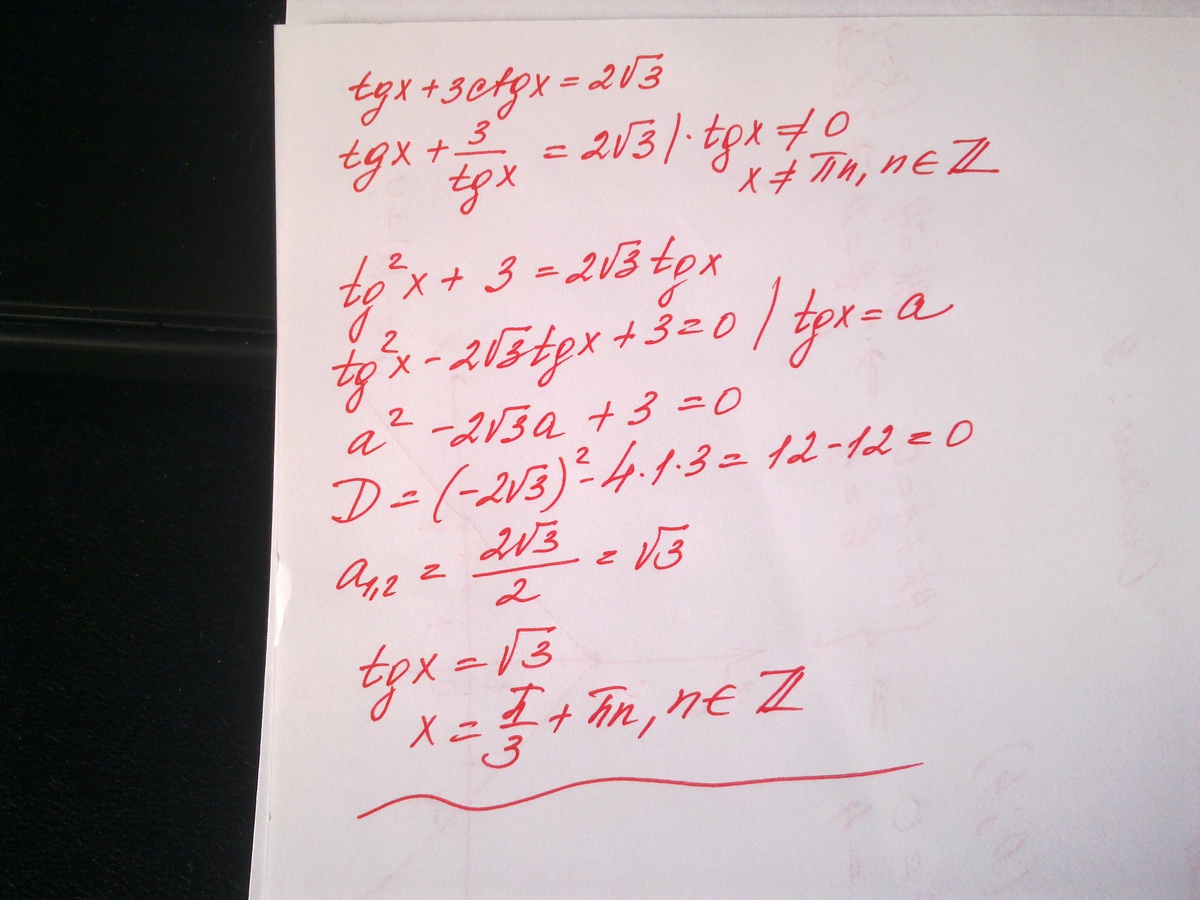 tgx + 3ctgx = 2√3
tgx + 3/tgx = 2√3 | · tgx ≠ 0
x ≠ πn, n ∈ ℤ
tg²x + 3 = 2√3 tgx
tg²x - 2√3tgx + 3 = 0 / tgx = a
a² - 2√3a + 3 = 0
D = (-2√3)² - 4·1·3 = 12 - 12 = 0
a₁,₂ = 2√3/2 = √3
tgx = √3
x = π/3 + πn, n ∈ ℤ